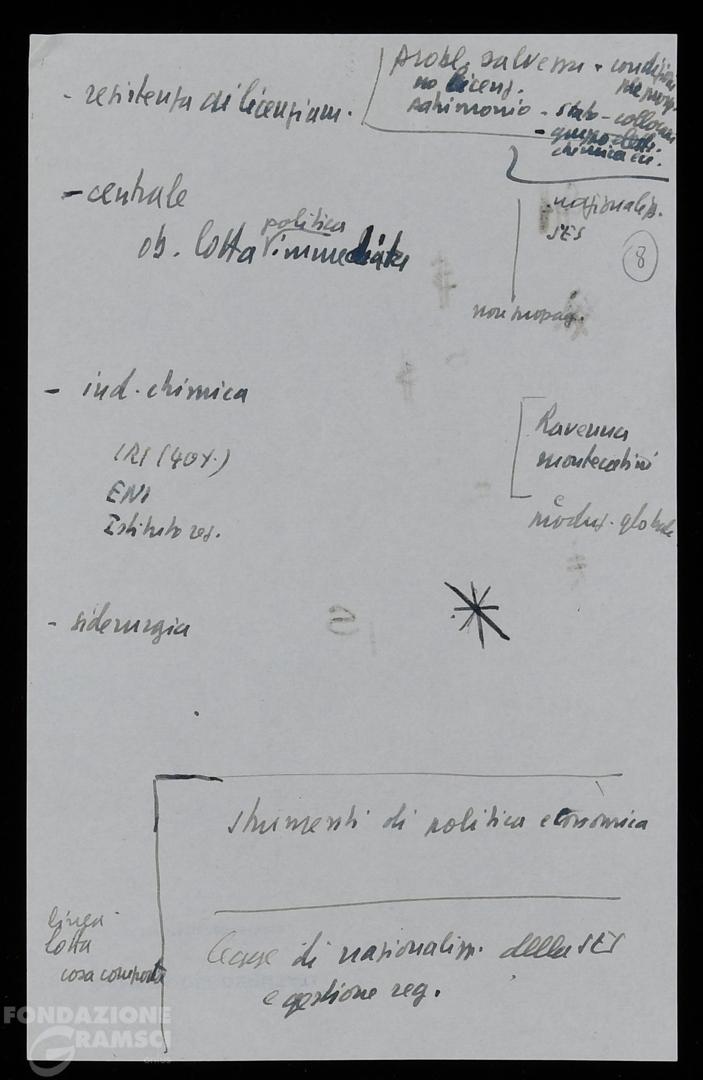 - resistenza ai licenziam.
probl. salvezza + condizioni
no licenz.
patrimonio - stato - colloqui
- gruppo
chimica
- centrale
ob. lotta politica immediata
- nazionaliz.
SES
8
non propag.
- ind. chimica
IRI (40%)
ENI
Istituto reg.
Ravenna
montecatini
produz. globale
- siderurgia
strumenti di politica economica
linea
lotta
cosa comporta
legge di nazionalizz. della SES
e gestione reg.
FONDAZIONE
GRAMSCI